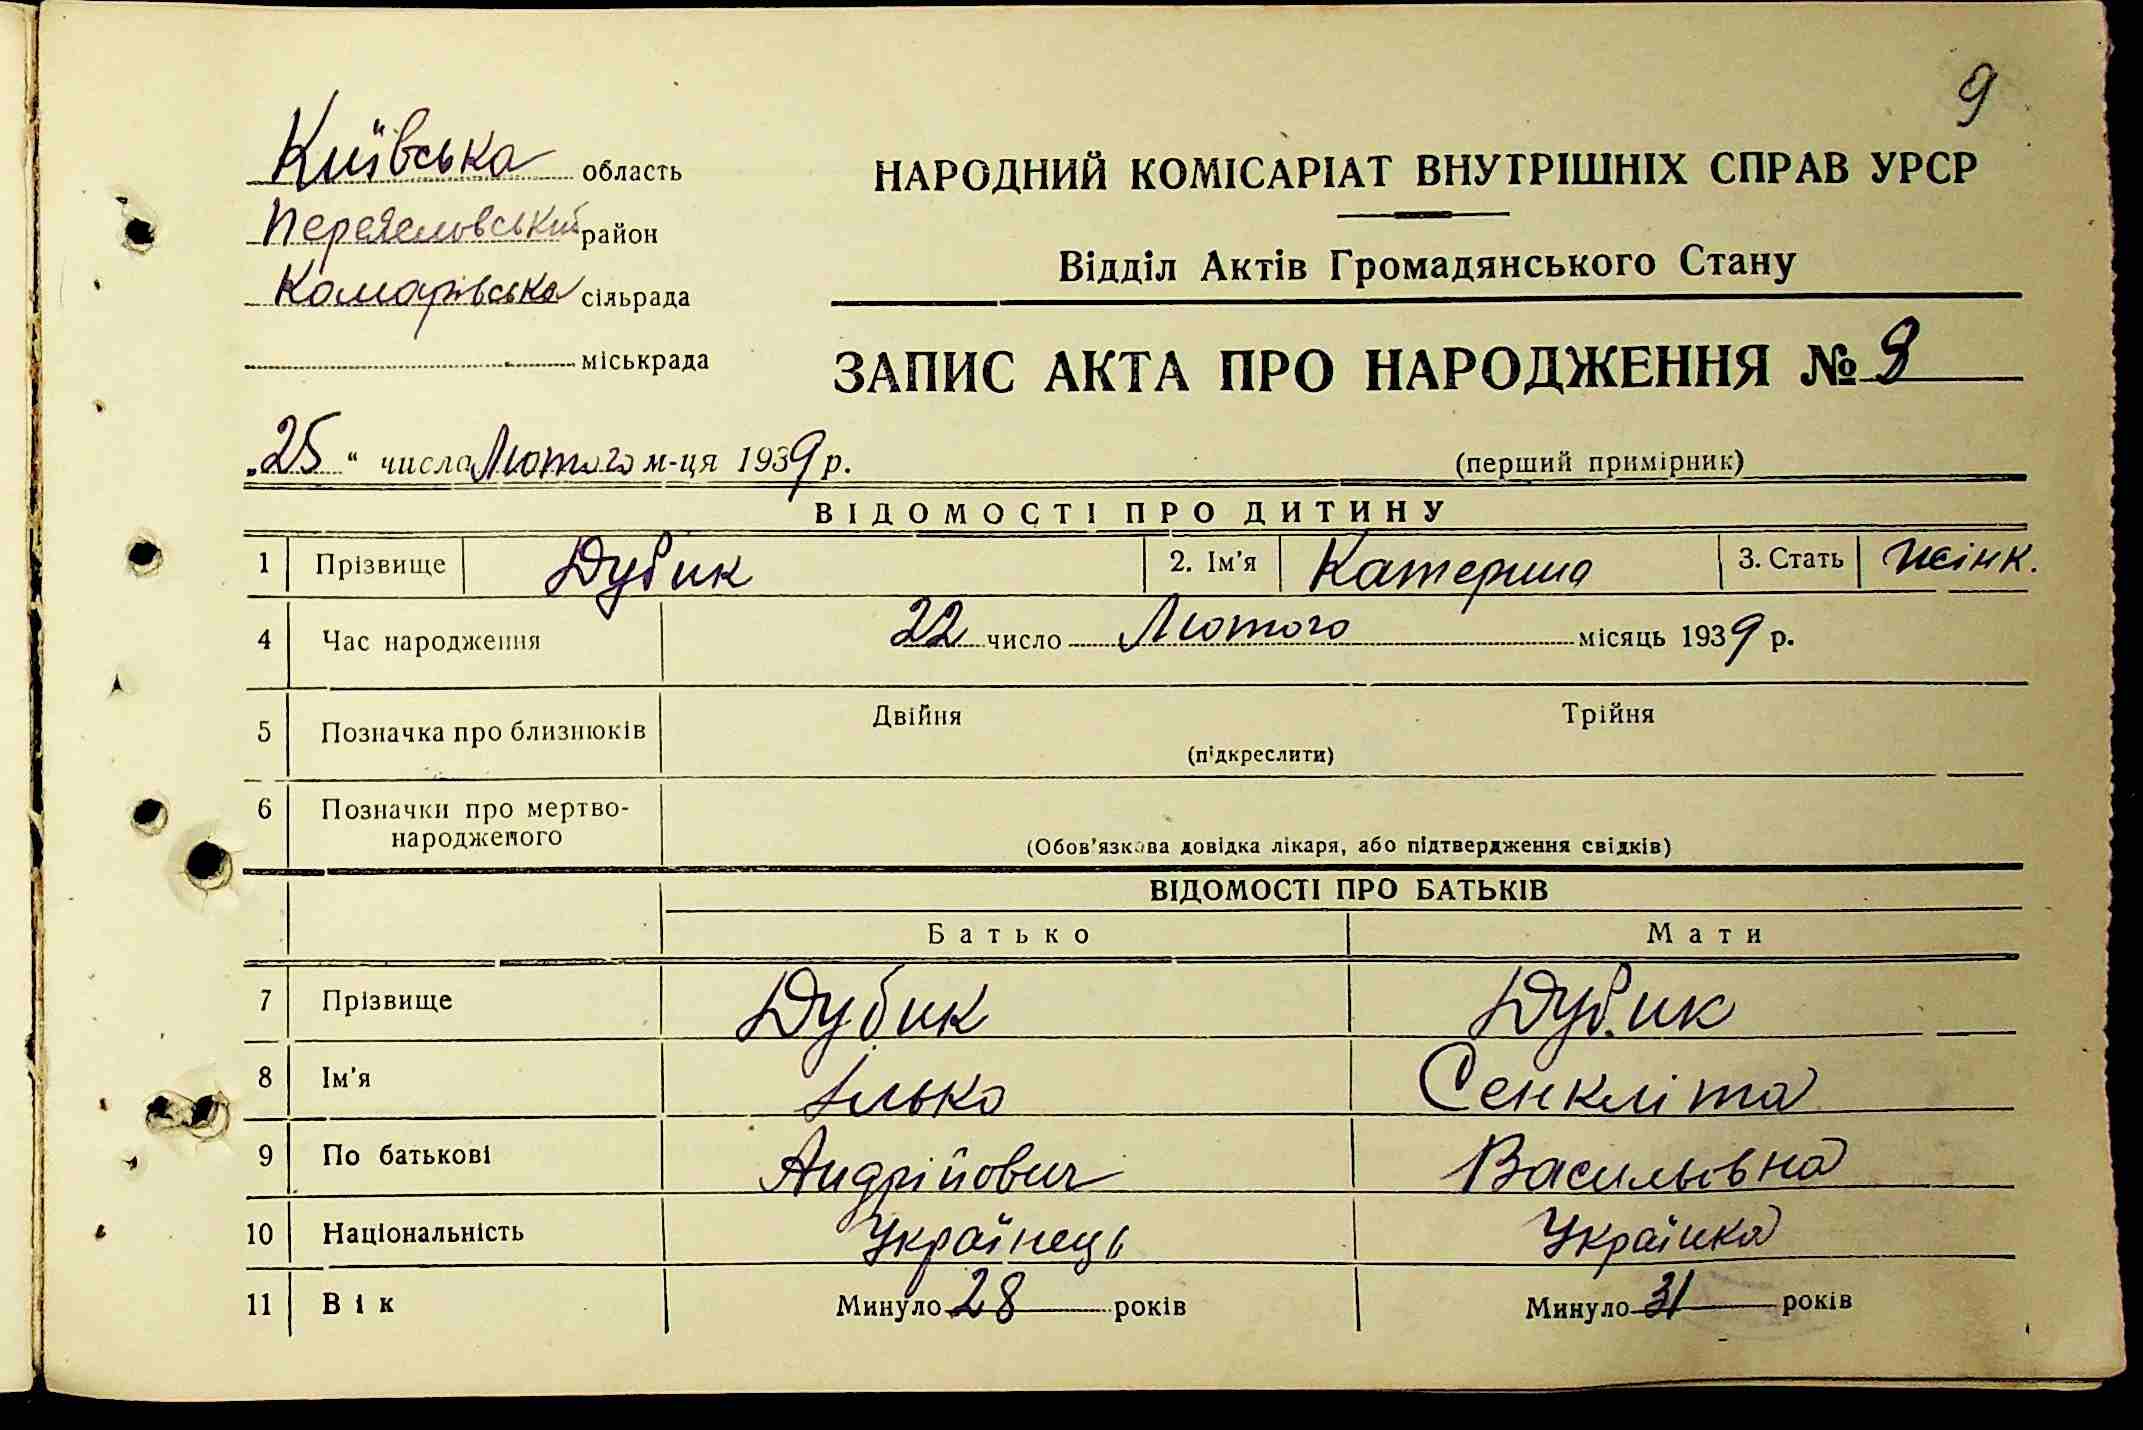 9
Київська область
Переяславський район
Комарівська сільрада
міськрада
НАРОДНИЙ КОМІСАРІАТ ВНУТРІШНІХ СПРАВ УРСР
Відділ Актів Громадянського Стану
ЗАПИС АКТА ПРО НАРОДЖЕННЯ № 9
„25“ числа Лютого м-ця 1939 р.
(перший примірник)
ВІДОМОСТІ ПРО ДИТИНУ
1 Прізвище Дубик 2. Ім'я Катерина 3. Стать жінк.
4 Час народження 22 число Лютого місяць 1939 р.
5 Позначка про близнюків Двійня Трійня
(підкреслити)
6 Позначки про мертво-
народженого
(Обов'язкова довідка лікаря, або підтвердження свідків)
ВІДОМОСТІ ПРО БАТЬКІВ
Батько Мати
7 Прізвище Дубик Дубик
8 Ім'я Ілько Сенкліта
9 По батькові Андрійович Васильовна
10 Національність Українець Українка
11 Вік Минуло 28 років Минуло 31 років